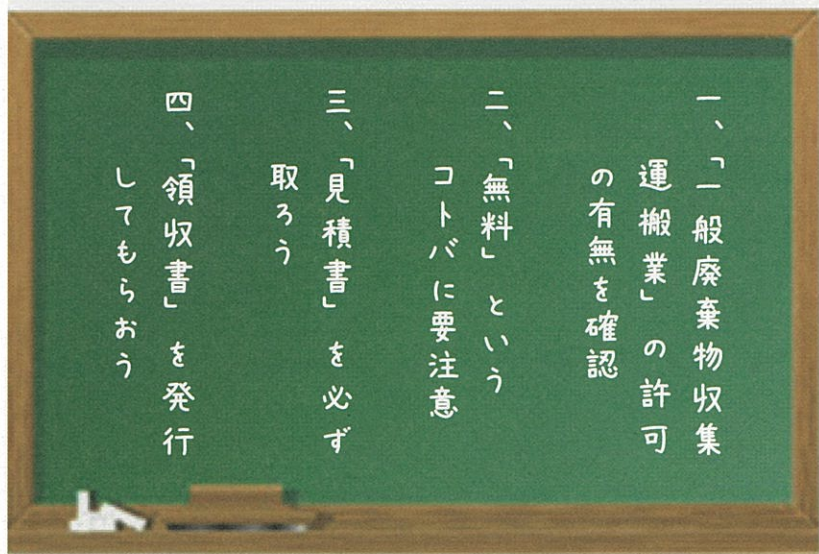 一、「一般廃棄物収集
運搬業」の許可
の有無を確認
二、「無料」という
コトバに要注意
三、「見積書」を必ず
取ろう
四、「領収書」を発行
してもらおう